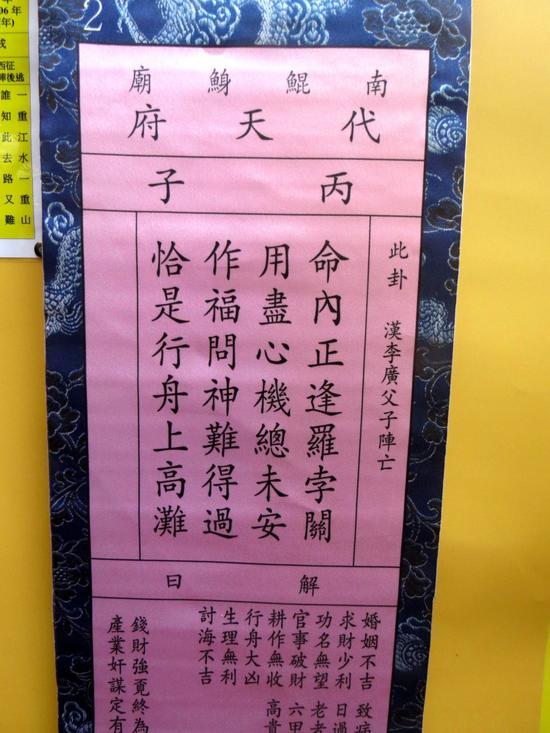 2
南鯤鯓廟
代天府
丙子
此卦 漢李廣父子陣亡
命內正逢羅孛關
用盡心機總未安
作福問神難得過
恰是行舟上高灘
解曰
婚姻不吉 致病
求財少利 日過
功名無望 老
官事破財 六甲
耕作無收 高貴
行舟大凶
生理無利
討海不吉
錢財強覓終為
產業奸謀定有
06年
年)
戌
西征
陣後逃
一重江水一重山
誰知此去路又難